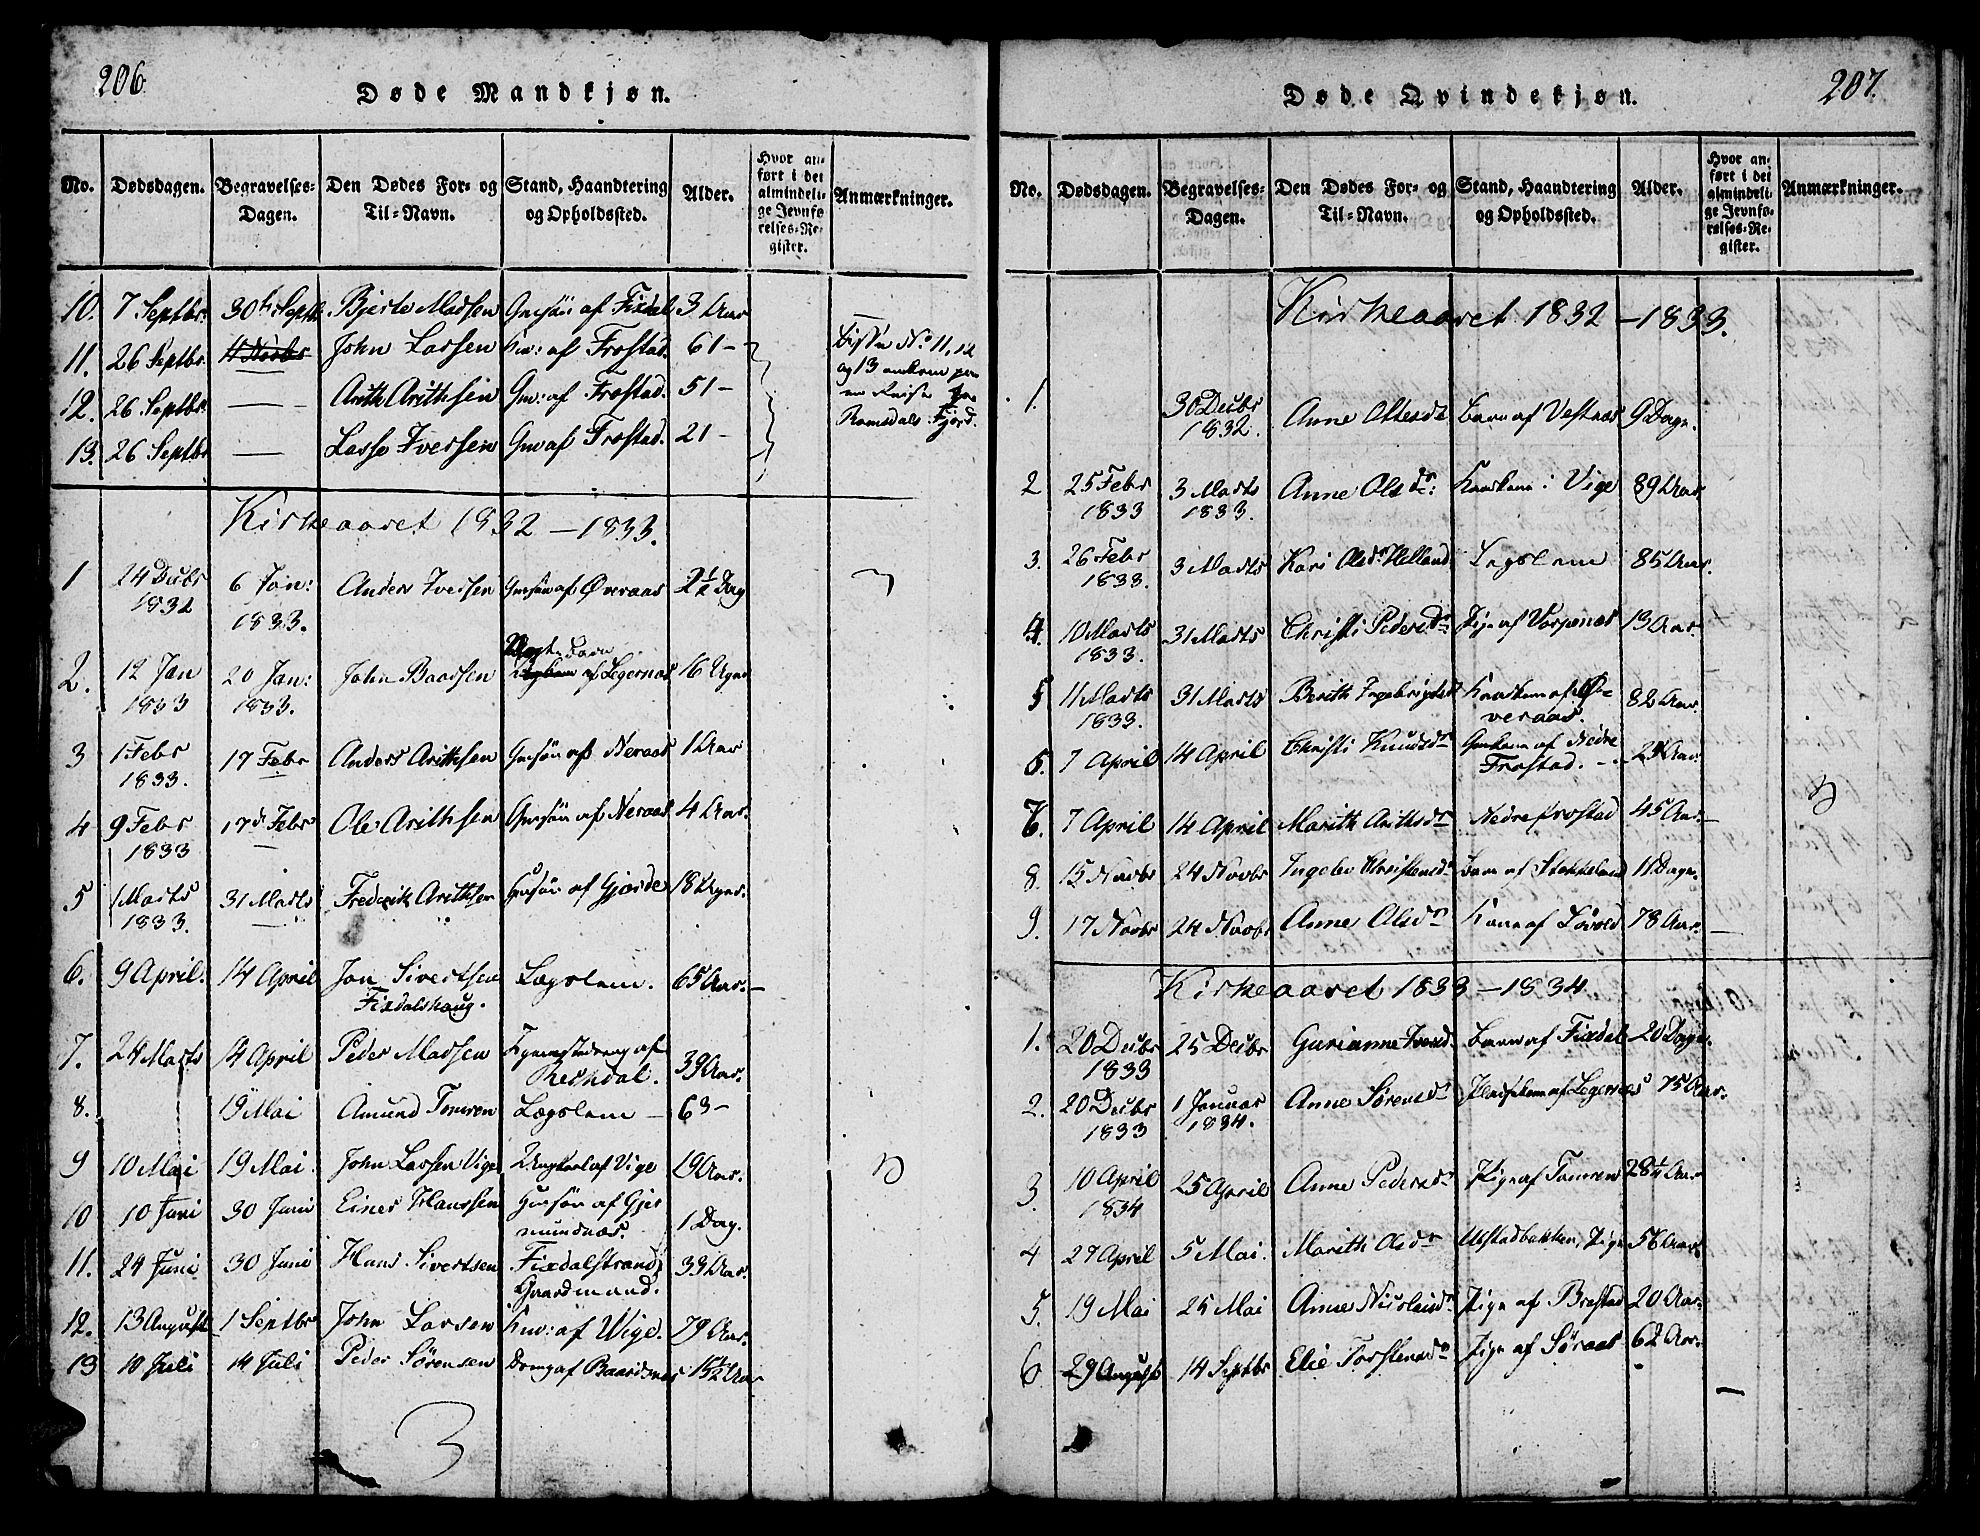 206.
Døde Mandkjøn.
No. Dødsdagen. Begravelses-Dagen. Den Dødes For- og Til-Navn. Stand, Haandtering og Opholdssted. Alder. Hvor anført i det almindelige Jevnførelses-Register. Anmærkninger.
10. 7 Septbr. 30th Septb Bjerte Madsen Gmsön af Fixdal 3 Aar
11. 26 Septbr. John Lassen Kw: af Frostad. 61 –
12. 26 Septbr. — Arith Arithsen Gm: af Frostad. 51 –
13. 26 Septbr — Lasse Iversen Gm af Frostad. 21 –
Disse No 11, 12
og 13 omkom paa
en Reise
Romsdals Fjord.
Kirkeaaret 1832 – 1833.
1 24 Decbr 1832 6 Jan: 1833. Anders Iversen Gmsön af Øveraas 2½ Dag
2. 12 Jan 1833 20 Jan: 1833. John Baadsen af Legernæs 16 Uger
3 1 Febr 1833. 17 Febr Anders Arithsen Gmsön af Neraas 1 Aar
4 9 Febr 1833 17d Febr Ole Arithsen Gmsön af Neraas 4 Aar.
5 1 Marts 1833. 31 Marts Frederik Arithsen Gmsön af Gjerde 18 Uger.
6. 9 April. 14 April Jon Sivertsen Fixdalshaug. Lægslem. 65 Aar. –
7. 24 Marts 14 April Peder Madsen af Rechdal. 39 Aar.
8. 19 Mai Amund Tomren Lægslem – 63 –
9 10 Mai 19 Mai. John Lassen Vige Ungkarl af Vige 19 Aar.
10 10 Juni 30 Juni Einer Hanssen Gmsön af Gjermundnæs. 1 Dag.
11. 24 Juni 30 Juni Hans Sivertsen Fixdalstrand, Gaardmand. 33 Aar.
12. 13 August 1 Septbr John Larsen Kw: af Wige. 79 Aar.
13 10 Juli 14 Juli Peder Sörensen Dreng af Baardsnæs 15½ Aar
207.
Døde Qvindekjøn.
No. Dødsdagen. Begravelses-Dagen. Den Dødes For- og Til-Navn. Stand, Haandtering og Opholdssted. Alder. Hvor anført i det almindelige Jevnførelses-Register. Anmærkninger.
Kirkeaaret 1832 – 1833.
1. 30 Decbr 1832. Anne Ottesdr Barn af Vestnæs 9 Dage.
2 25 Febr 1833 3 Marts 1833. Anne Olsdr: i Vige 89 Aar.
3. 26 Febr 1833. 3 Marts Kari Olsdr Helland Lægslem 85 Aar.
4. 10 Marts 1833. 31 Marts Christi Pedersdr Pige af Vorpenæs 13 Aar.
5 11 Marts 1833. 31 Marts Berith Ingebrigtsd af Øveraas. 82 Aar.
6. 7 April 14 April Christi Knudsdr Gmkone af Nedre Frostad. 29 Aar.
7. 7 April 14 April Marith Arithsdr Nedrefrostad 45 Aar. –
8. 15 Novbr 24 Novbr Ingebor Christensd Barn af 11 Dage.
9. 17 Novbr 24 Novbr Anne Olsdr Kone af Lövold 78 Aar. –
Kirkeaaret 1833 – 1834
1. 20 Decbr 1833 25 Decbr Gurianne Iversd. Barn af Fixdal 20 Dage.
2. 20 Decbr 1833 1 Januar 1834. Anne Sörensdr af Legernæs 75 Aar.
3. 10 April 1834 25 April Anne Pedersdr Pige af Tomren 28½ Aar
4 27 April 5 Mai. Marith Olsdr Ulstadbakken, Pige 56 Aar
5. 19 Mai 25 Mai Anne Nicolaisdr Pige af Brastad 20 Aar.
6 29 August 14 Septbr Elie Torstensdr Pige af Söraas 62 Aar.